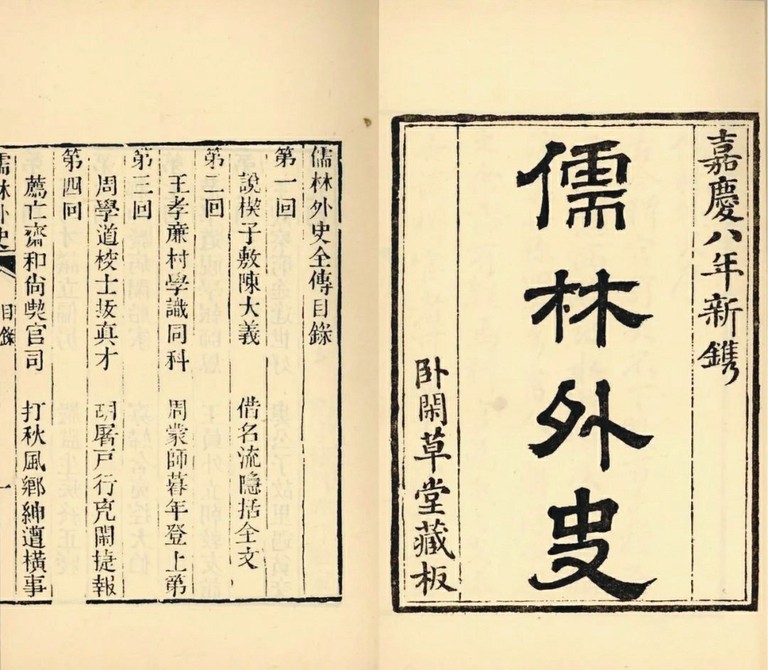 嘉慶八年新鐫
儒林外史
卧閑草堂藏板
儒林外史全傳目錄
第一回
說楔子敷陳大義 借名流隱括全文
第二回
王孝廉村學識同科 周蒙師暮年登上第
第三回
周學道校士拔真才 胡屠戸行兇鬧捷報
第四回
薦亡齋和尚喫官司 打秋風鄉紳遭橫事
儒林外史 目錄 一